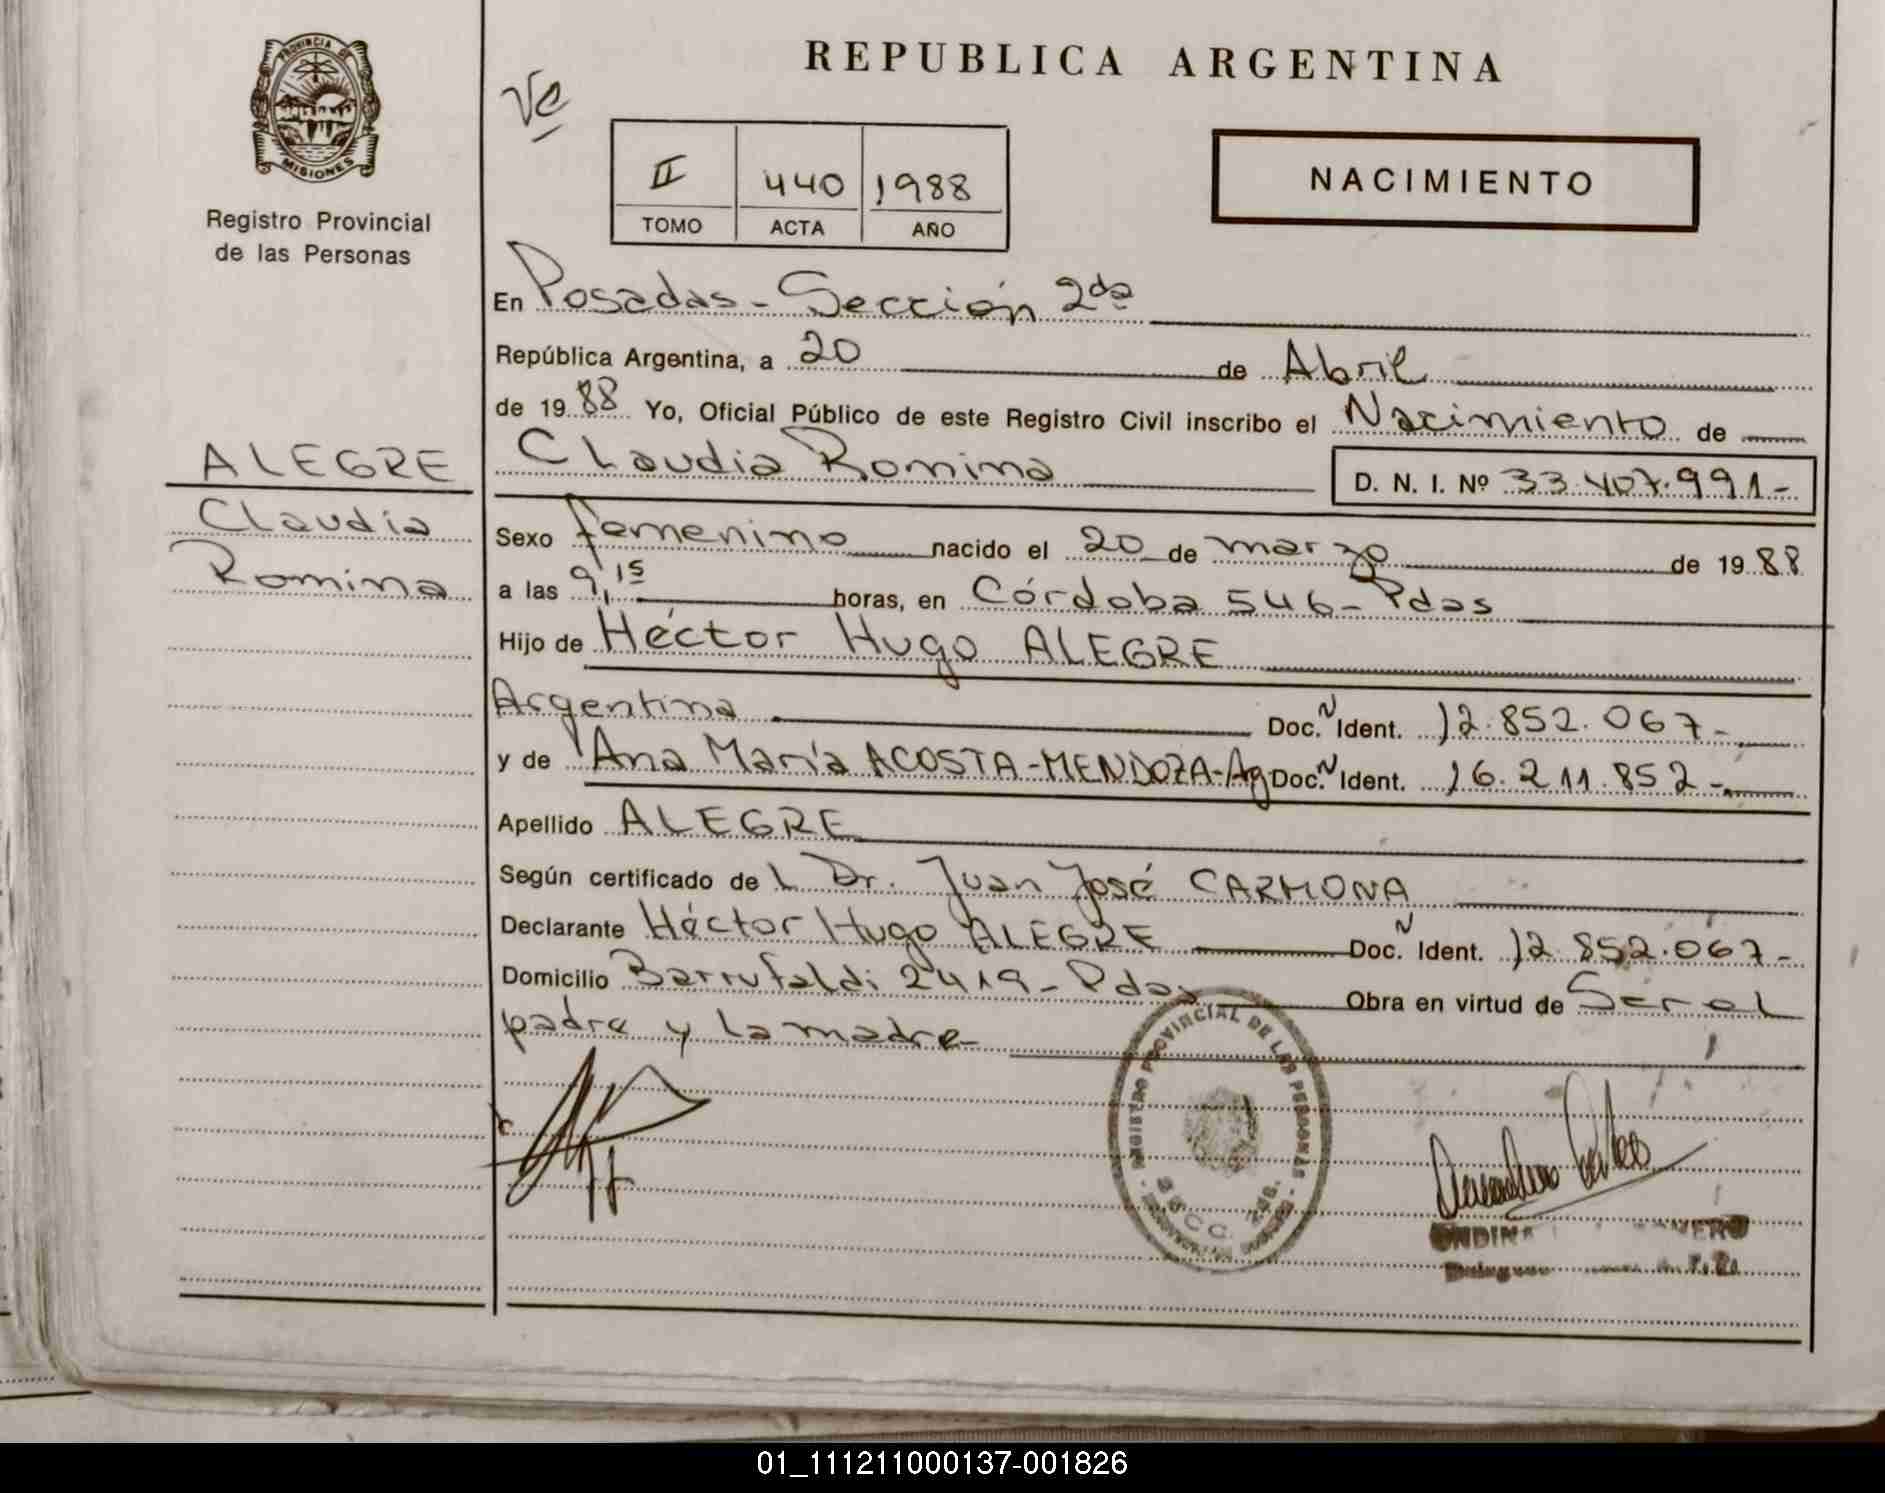 PROVINCIA DE
MISIONES
Registro Provincial
de las Personas
ALEGRE
Claudia
Romina
REPUBLICA ARGENTINA
II 440 1988
TOMO ACTA AÑO
NACIMIENTO
En Posadas - Sección 2da
República Argentina, a 20 de Abril
de 1988 Yo, Oficial Público de este Registro Civil inscribo el Nacimiento de
Claudia Romina D. N. I. Nº 33.407.991-
Sexo femenino nacido el 20 de marzo de 1988
a las 9,15 horas, en Córdoba 546- Pdas
Hijo de Héctor Hugo ALEGRE
Argentina Doc. N Ident. 12.852.067-
y de Ana María ACOSTA-MENDOZA-Ag Doc. N Ident. 16.211.852-
Apellido ALEGRE
Según certificado de L Dr. Juan José CARMONA
Declarante Héctor Hugo ALEGRE Doc. N Ident. 12.852.067-
Domicilio Barrufaldi 2419- Pdas Obra en virtud de Ser el
padre y la madre-
REGISTRO PROVINCIAL DE LAS PERSONAS
01_111211000137-001826